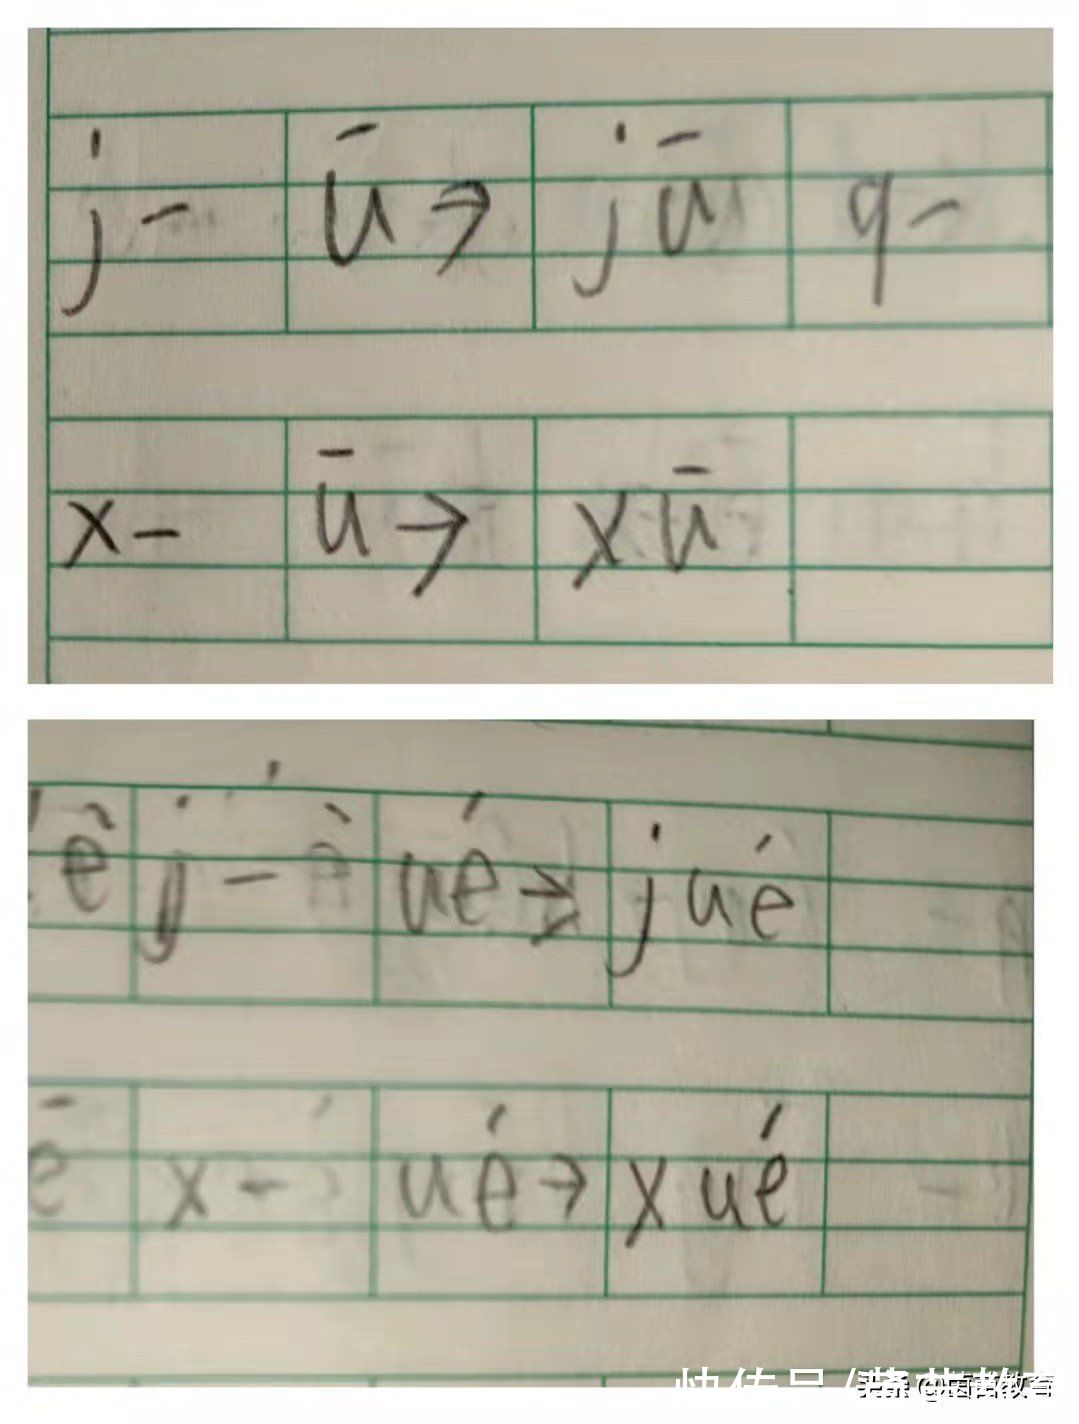 j - ū → jū q -
x - ū → xū
ê j - ué → jué
ē x - ué → xué